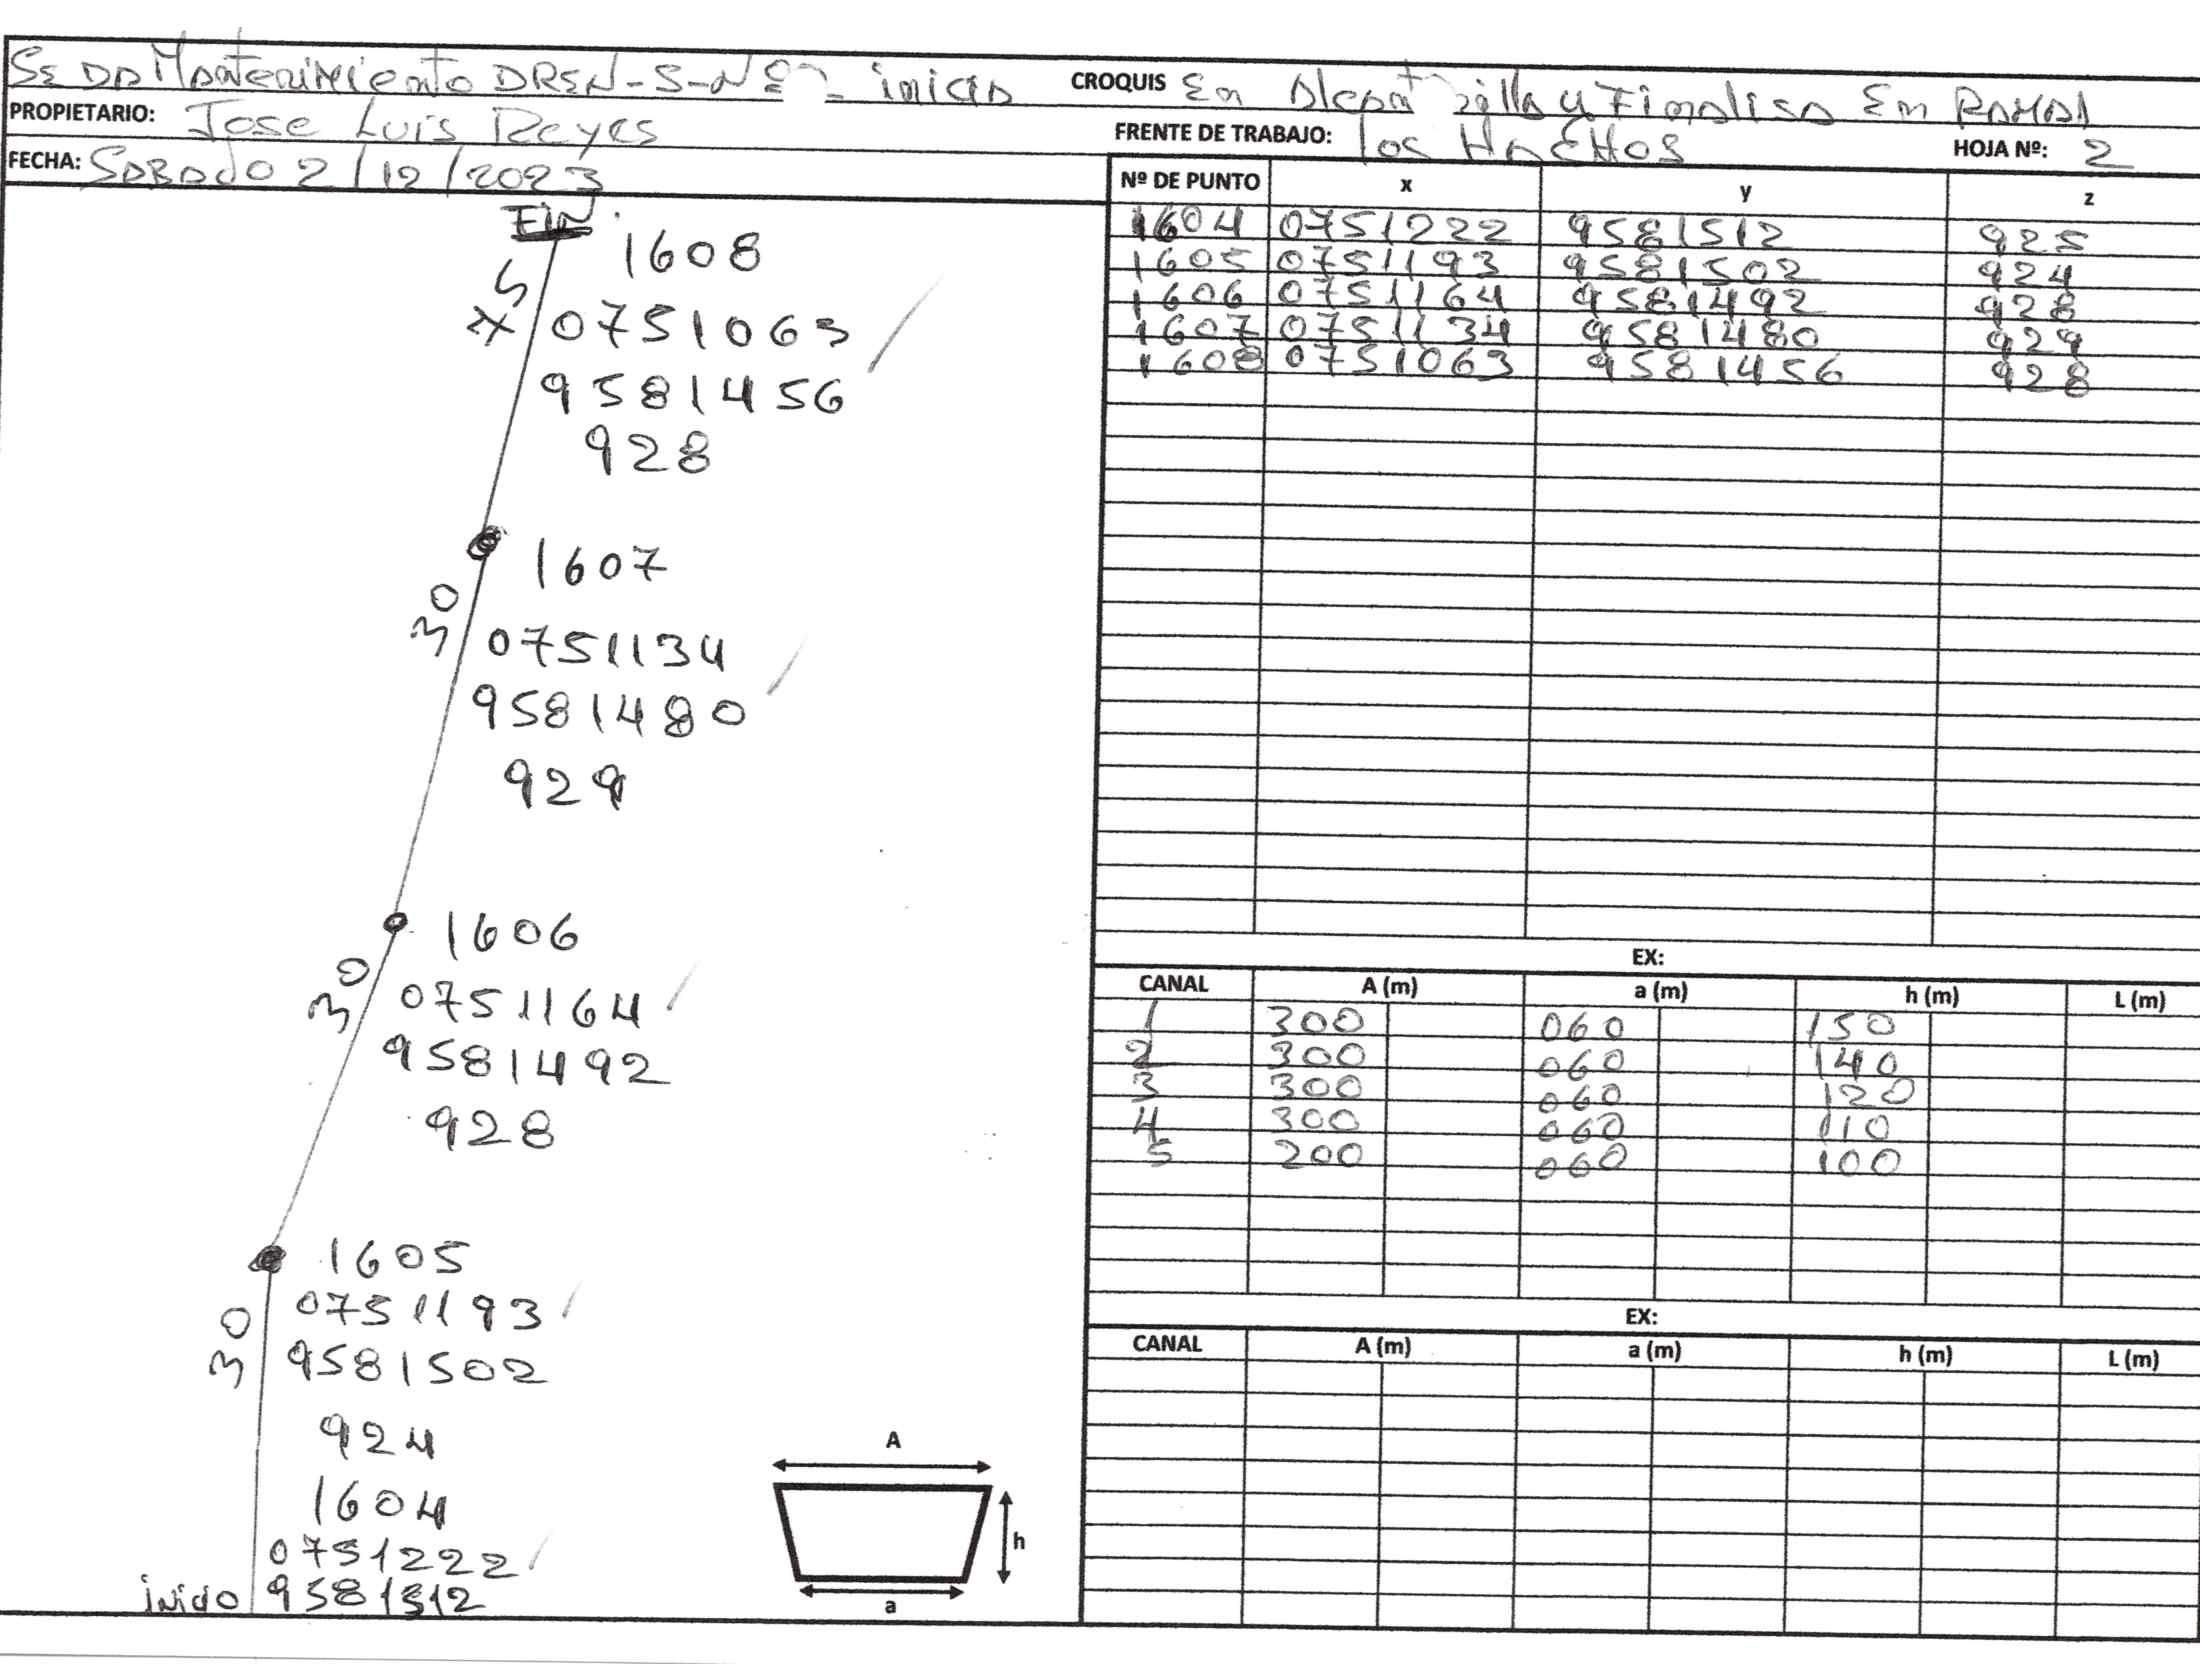 SE DA Mantenimiento DREN-S-Nº2 - inicia CROQUIS En Alcantarilla y Finalisa En RAMAL
PROPIETARIO: Jose Luis Reyes FRENTE DE TRABAJO: los HACHOS HOJA Nº: 2
FECHA: SABADO 2/12/2023
FIN
1608
75
0751063
9581456
928
1607
30
0751134
9581480
929
1606
30
0751164
9581492
928
1605
0751193
30
9581502
924
1604
0751222
inicio 9581512
A
h
a
Nº DE PUNTO x y z
1604 0751222 9581512 925
1605 0751193 9581502 924
1606 0751164 9581492 928
1607 0751134 9581480 929
1608 0751063 9581456 928
EX:
CANAL A (m) a (m) h (m) L (m)
1 300 060 150
2 300 060 140
3 300 060 120
4 300 060 110
5 200 060 100
EX:
CANAL A (m) a (m) h (m) L (m)